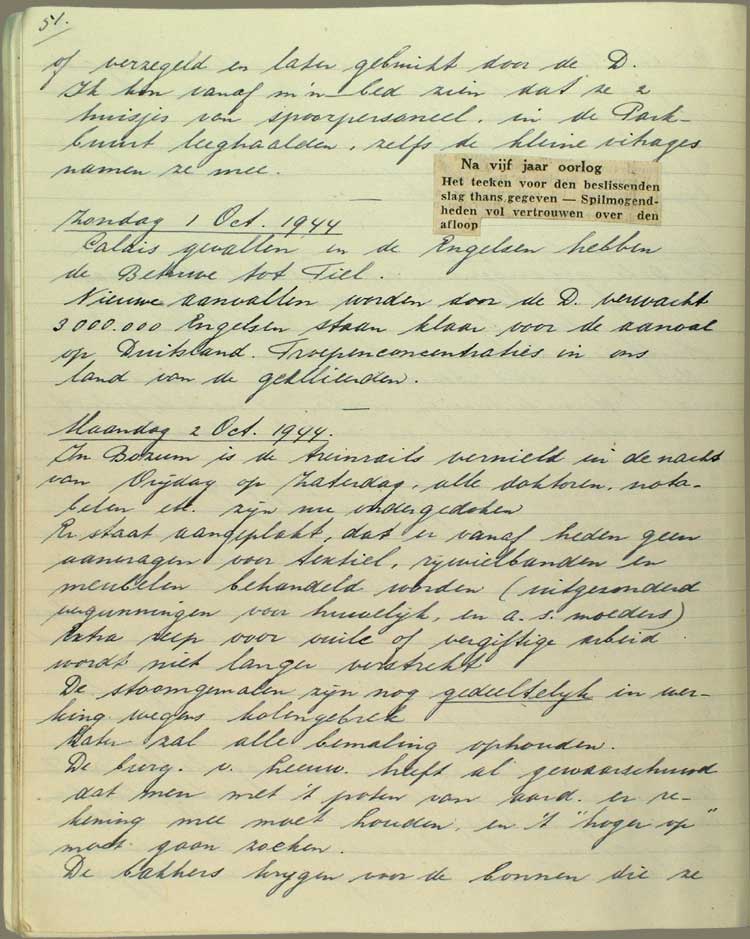 51.
of verzegeld en later gebruikt door de D.
Ik kon vanaf m'n bed zien dat ze 2
huisjes van spoorpersoneel, in de Park-
buurt leeghaalden, zelfs de kleine vitrages
namen ze mee.
Na vijf jaar oorlog
Het teeken voor den beslissenden
slag thans gegeven — Spilmogend-
heden vol vertrouwen over den
afloop
Zondag 1 Oct. 1944
Calais gevallen en de Engelsen hebben
de Betuwe tot Tiel.
Nieuwe aanvallen worden door de D. verwacht
3000.000 Engelsen staan klaar voor de aanval
op Duitsland. Troepenconcentraties in ons
land van de geallieerden.
Maandag 2 Oct. 1944.
In Bozum is de treinrails vernield in de nacht
van Vrijdag op Zaterdag, alle doktoren, nota-
belen etc. zijn nu ondergedoken
Er staat aangeplakt, dat er vanaf heden geen
aanvragen voor textiel, rijwielbanden en
meubelen behandeld worden (uitgezonderd
vergunningen voor huwelijk, en a.s. moeders)
Extra zeep voor vuile of vergiftige arbeid
wordt niet langer verstrekt
De stoomgemalen zijn nog gedeeltelijk in wer-
king wegens kolengebrek
Later zal alle bemaling ophouden.
De burg. v. Leeuw. heeft al gewaarschuwd
dat men met 't poten van aard. er re-
kening mee moet houden, en 't "hoger op"
moet gaan zoeken.
De bakkers krijgen voor de bonnen die ze